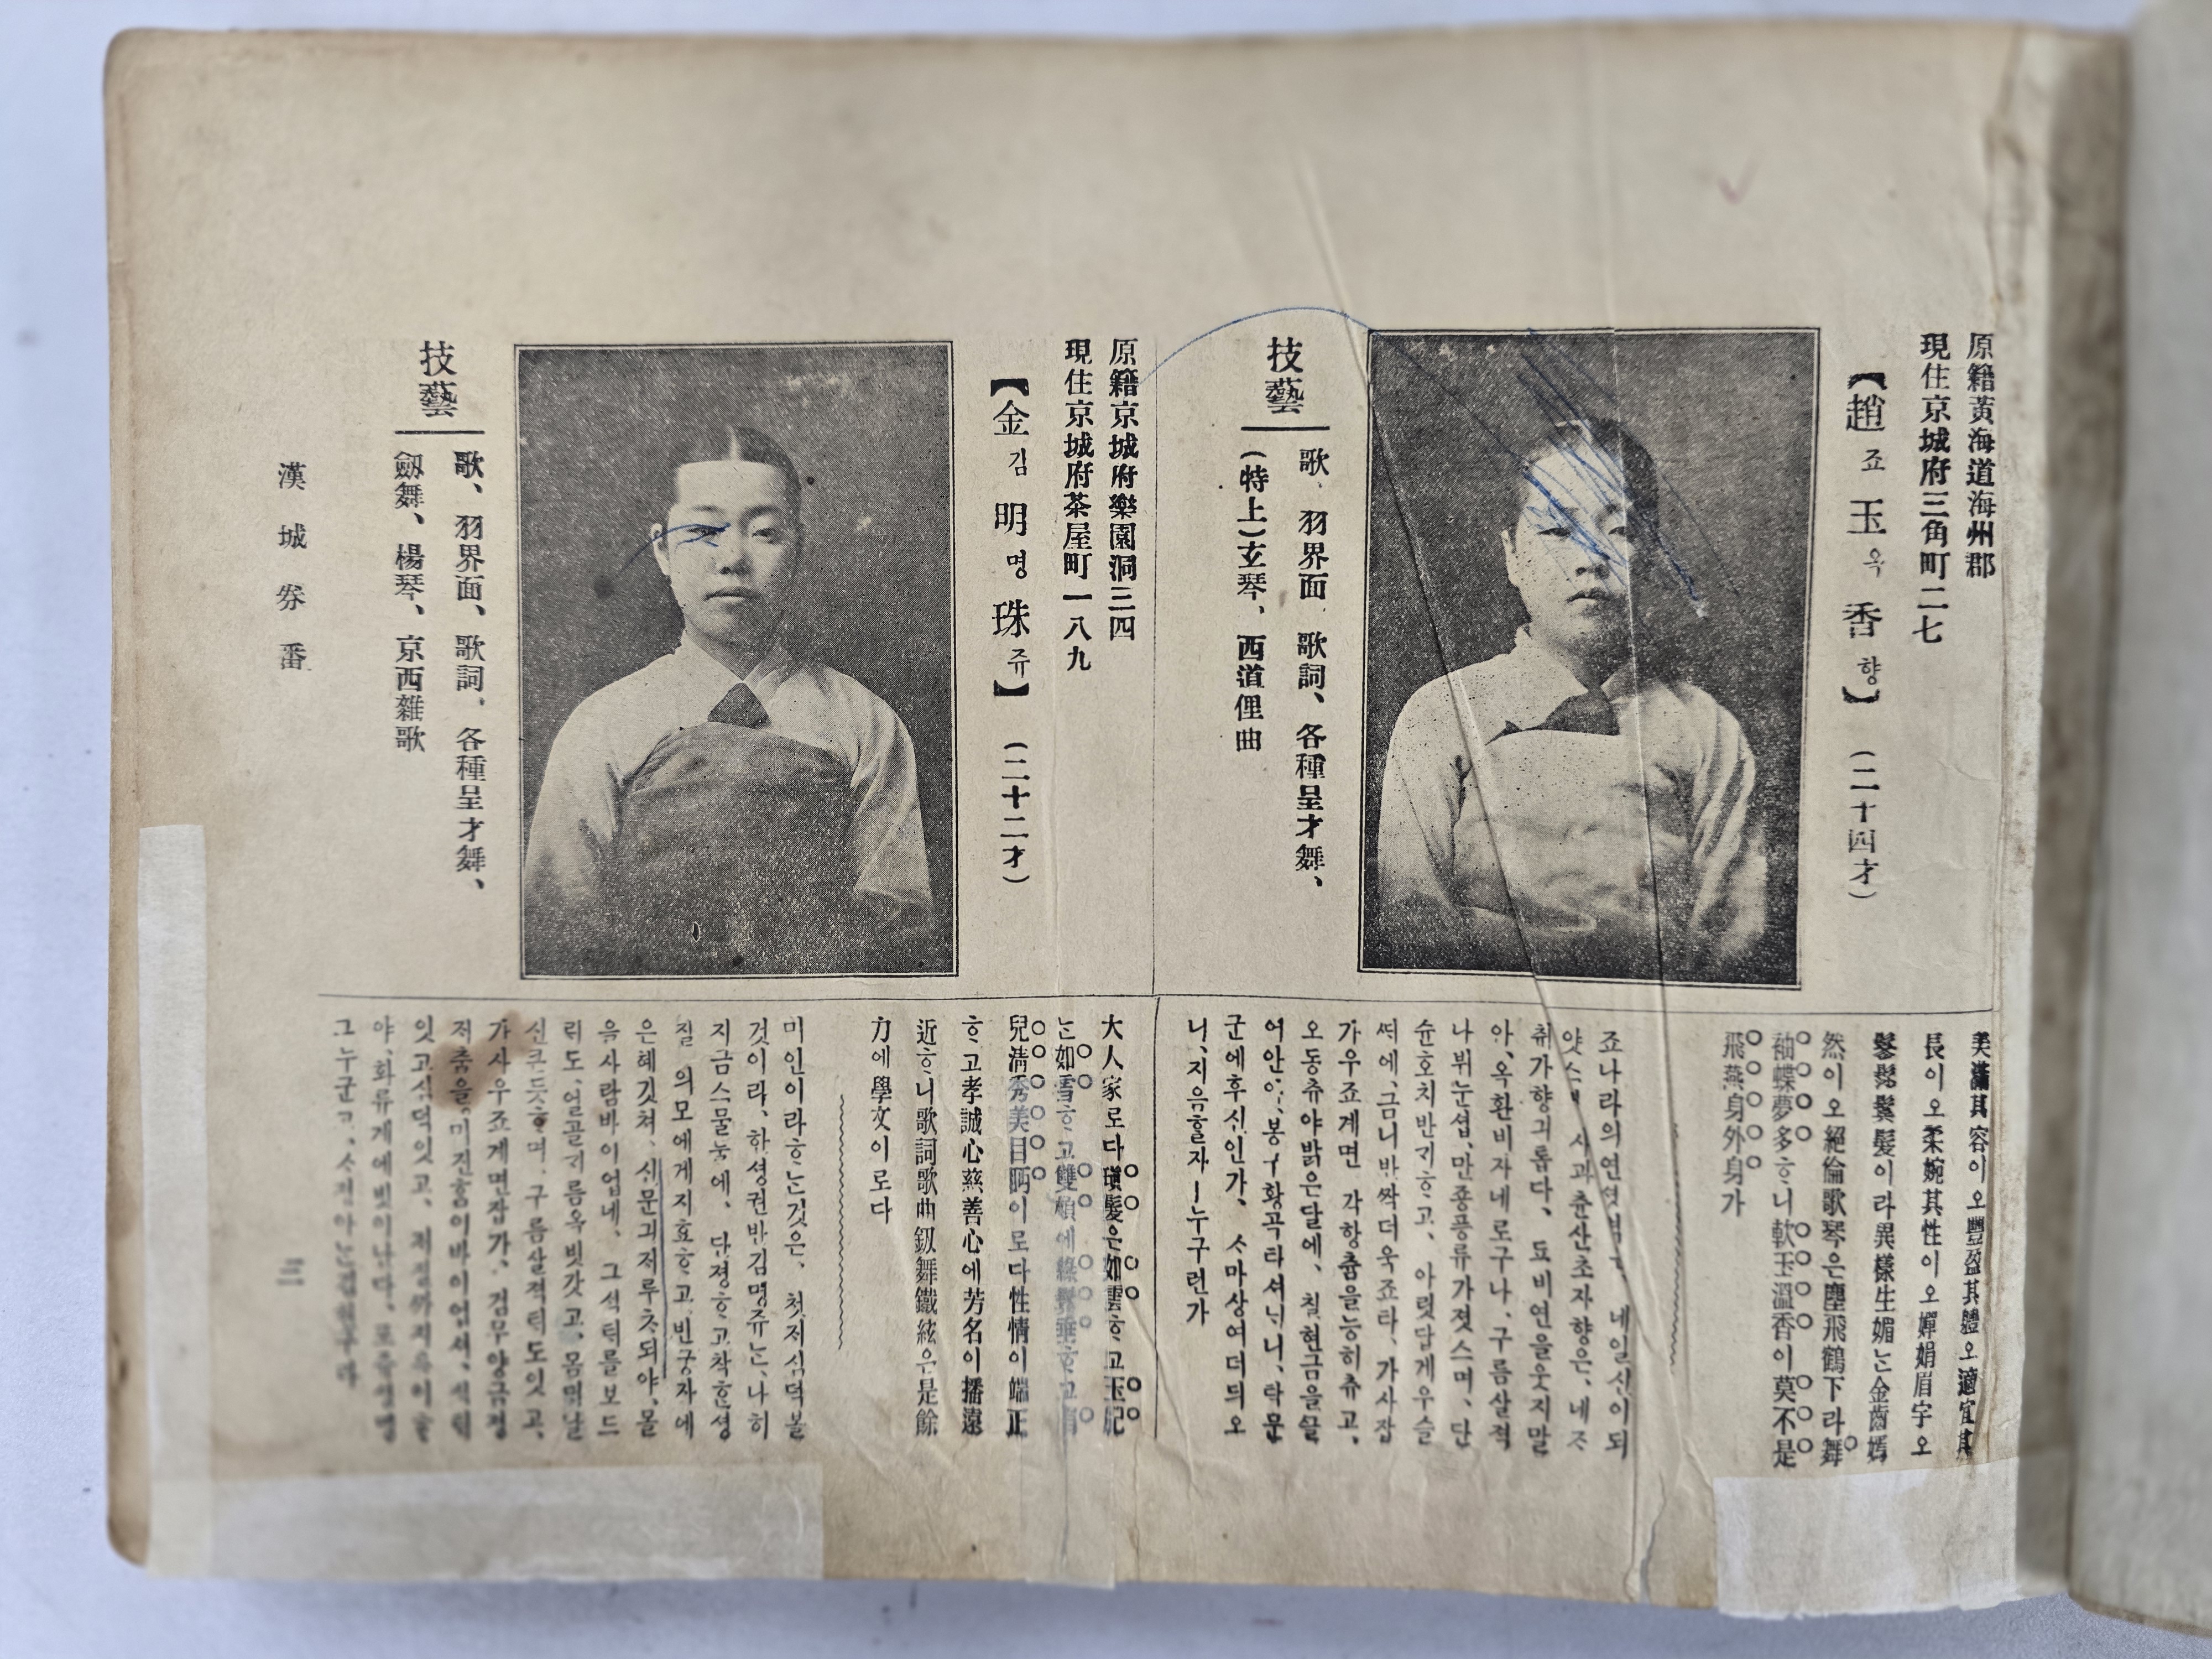 原籍黃海道海州郡
現住京城府三角町二七
【趙죠玉옥香향】 (二十四才)
技藝
歌、羽界面、歌詞、各種呈才舞、
(特上)玄琴、西道俚曲
美滿其容이오豐盈其體오適宜其
長이오柔婉其性이오嬋娟眉宇오
鬖髿鬢髮이라異樣生媚는金齒嫣
然이오絕倫歌琴은塵飛鶴下라舞
袖蝶夢多ᄒᆞ니軟玉溫香이莫不是
飛燕身外身가
죠나라의 네일신이되
야 사과춘산초자향은、네즈
취가향긔롭다、됴비연을웃지말
아、옥환비자네로구나、구름살적
나뷔눈셥、만죵풍류가졋스며、단
슌호치반긔ᄒᆞ고、아릿답게우슬
ᄯᅥ에、금니반ᄶᅡᆨ더욱죠타、가사잡
가우죠계면 각항츔을능히츄고、
오동츄야밝은달에、칠현금을
어안아、봉 황곡타셔니、탁문
군에후신인가、ᄉᆞ마상여더듸오
니、지음ᄒᆞᆯ자ㅣ누구런가
原籍京城府樂園洞三四
現住京城府茶屋町一八九
【金김明명珠쥬】 (二十二才)
技藝
歌、羽界面、歌詞、各種呈才舞、
劒舞、楊琴、京西雜歌
大人家로다鬒髮은如雲ᄒᆞ고玉肌
는如雪ᄒᆞ고雙頰에 垂ᄒᆞ고
兒淸秀美目眄이로다性情이端正
ᄒᆞ고孝誠心慈善心에芳名이播遠
近ᄒᆞ니歌詞歌曲釼舞鐵絃은是餘
力에學文이로다
미인이라ᄒᆞ는것은、첫ᄌᆡ식덕볼
것이라、한셩권반김명쥬는、나히
지금스물둘에、단졍ᄒᆞ고착ᄒᆞᆫ셩
질 의모에게지효ᄒᆞ고、빈궁자에
은혜깃쳐、신문긔ᄌᆡ루ᄎᆞ되야、몰
을사람바이업네、그ᄉᆡᆨᄐᆡ를보드
ᄅᆡ도、얼골기름옥빗갓고、몸ᄆᆡ날
신큰듯ᄒᆞ며、구름살적ᄐᆡ도잇고、
가사우죠계면잡가、검무양금졍
ᄌᆡ춤을、미진홈이바이업셔、
잇고식덕잇고、ᄌᆡ질ᄭᆞ지
야、화류계에빗이난다、
그누군고、
漢城券番
三